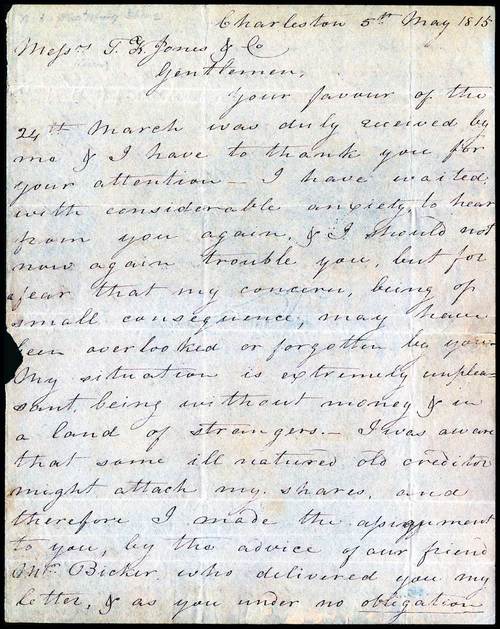 Charleston 5th May 1815
Messrs T. K. Jones & Co
Gentlemen,
Your favour of the
24th March was duly received by
me & I have to thank you for
your attention — I have waited
with considerable anxiety to hear
from you again, & I should not
now again trouble you, but for
fear that my concern, being of
small consequence, may have
been overlooked or forgotten by you—
My situation is extremely unplea=
sant, being without money & in
a land of strangers — I was aware
that some ill natured old creditor
might attach my shares, and
therefore I made the assignment
to you, by the advice of our friend
Mr Bicker, who delivered you my
letter, & as you under no obligation